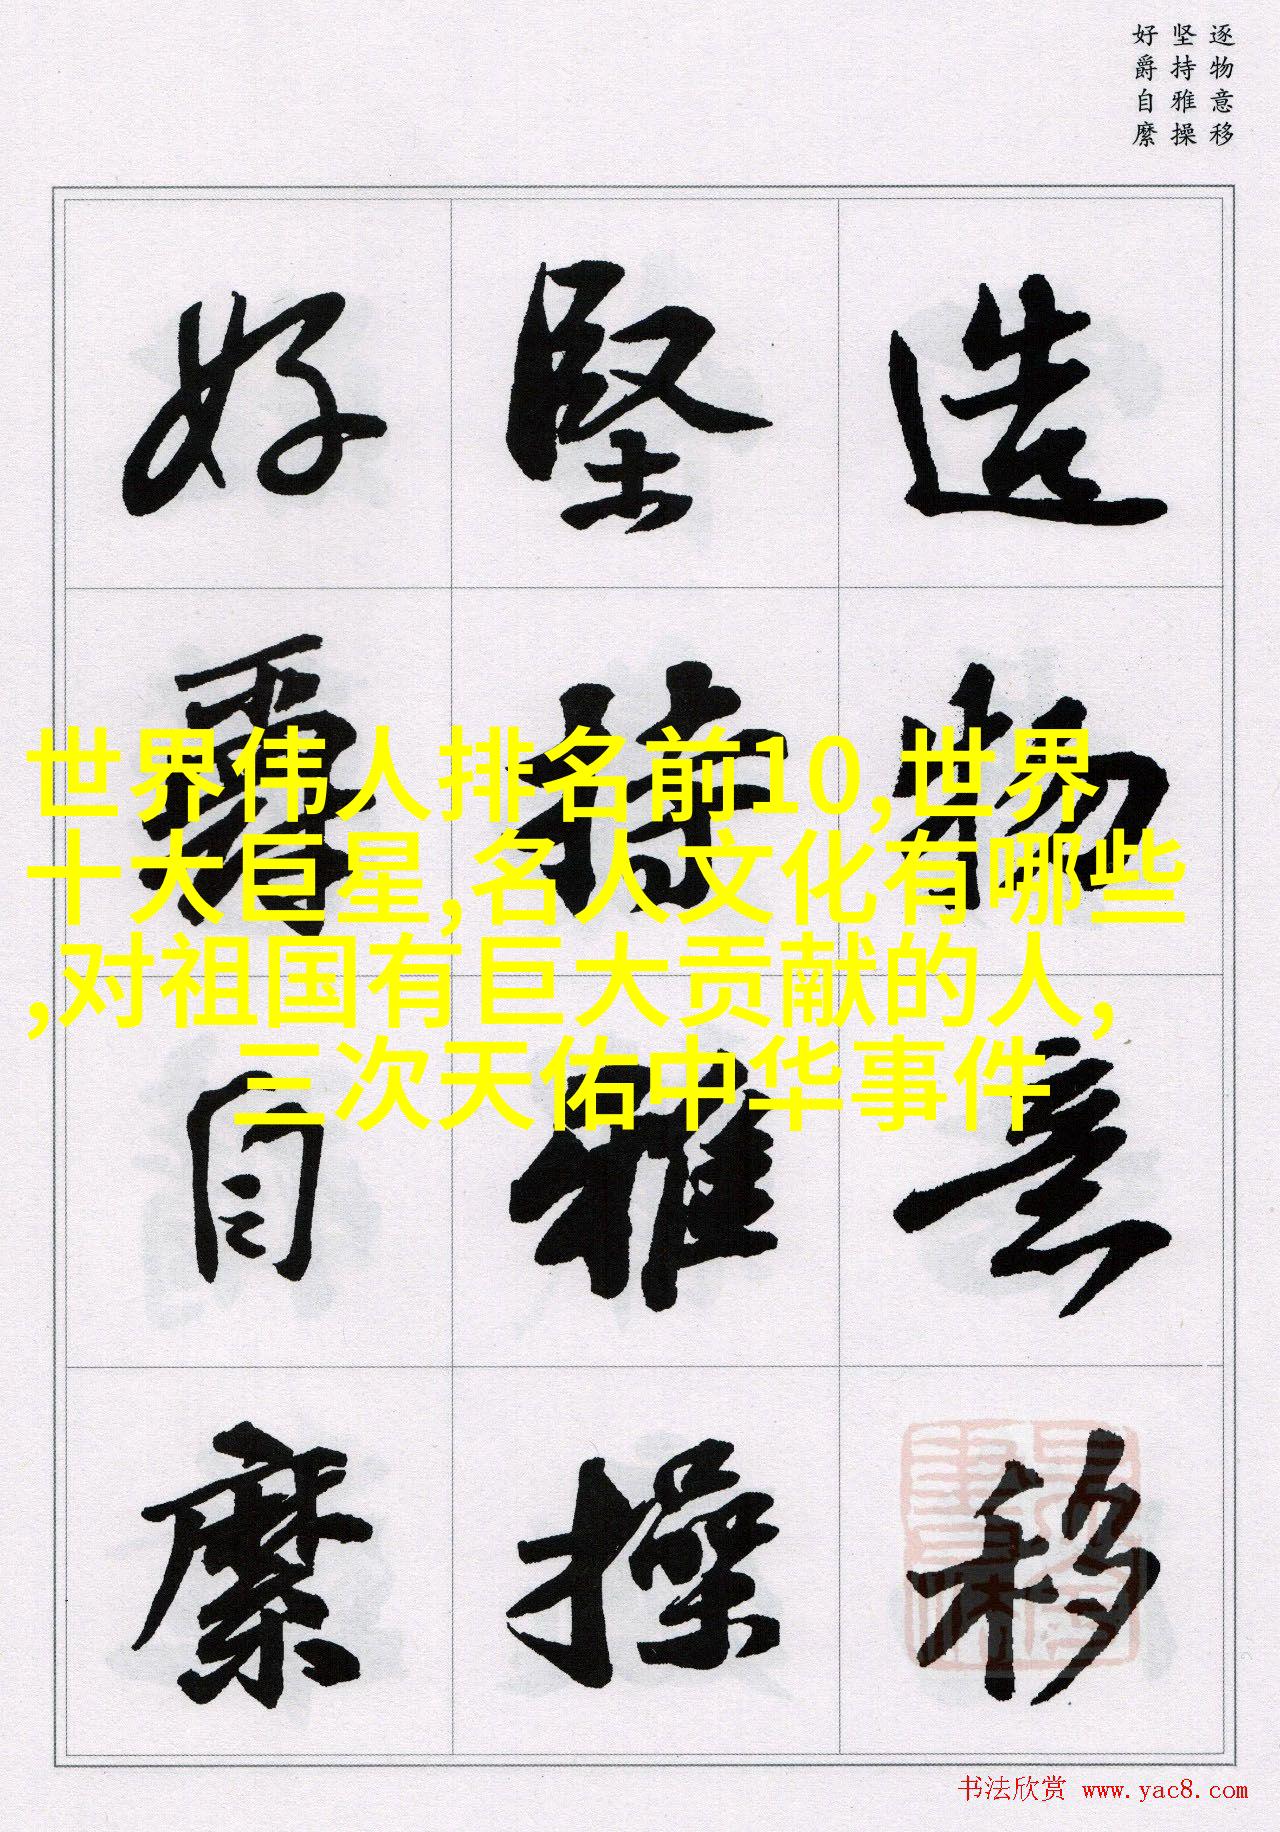 逐物意移
坚持雅操
好爵自縻
造物意移
堅持雅操
好爵自縻
世界伟人排名前10,世界
十大巨星,名人文化有哪些
,对祖国有巨大贡献的人,
三次天佑中华事件
书法欣赏 www.yac8.com